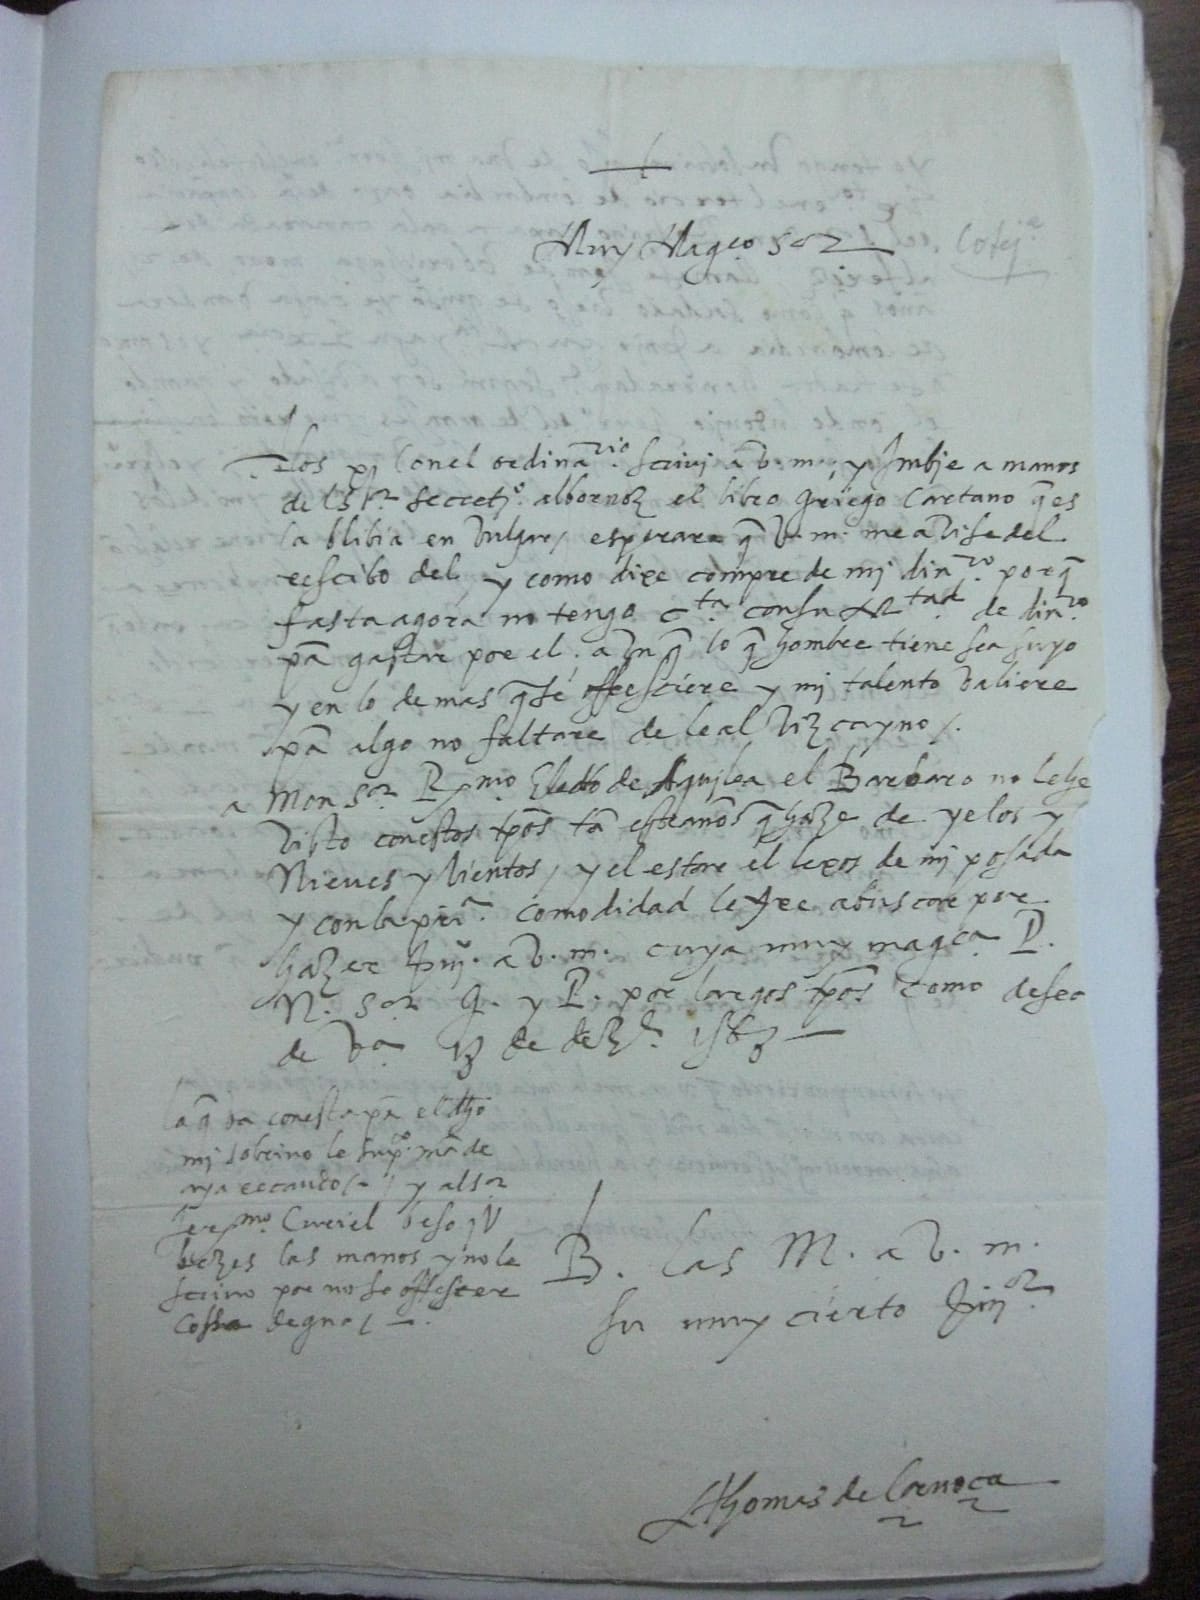 Muy Mag.co s.or
Cotej.a
A los xj con el ordina.rio scrivi a v. m. y Imbje a manos
del s.or secret.o albornoz el libro griego Caetano q̃ es
la blibia en vulgar, esperare q̃ v. m. me avise del
rescibo del, y como dixe compre de mj din.ro porq̃
fasta agora no tengo c.ta con su de din.ro
pã gastar por el. avnq̃ lo q̃ hombre tiene sea suyo
y en lo de mas q̃ se offresciere y mj talento valiere
pã algo no faltare de leal vizcayno /.
a Mon s.or R.mo Eletto de Aquilea el Barbaro no le he
visto con estos tp̃os tã estraños q̃ haze de yelos y
Nieves y vientos, y el estar el lexos de mj posada
y con la pri.a comodidad le yre a buscar por
hazer a v. m. cuya muy mag.ca P.
N. s.or g. y P. por largos tp̃os como deseo
de v.a 13 de dez.e 1563
la q̃ va con esta pã el dho
mj sobrino le sup.co mãde
aya recaudo / y al s.or
Jer.mo Curiel beso
vezes las manos y no le
scrivo por no se offrescer
cossa degna /.
B. las M. a v. m.
su muy cierto
Thomas de Çornoça